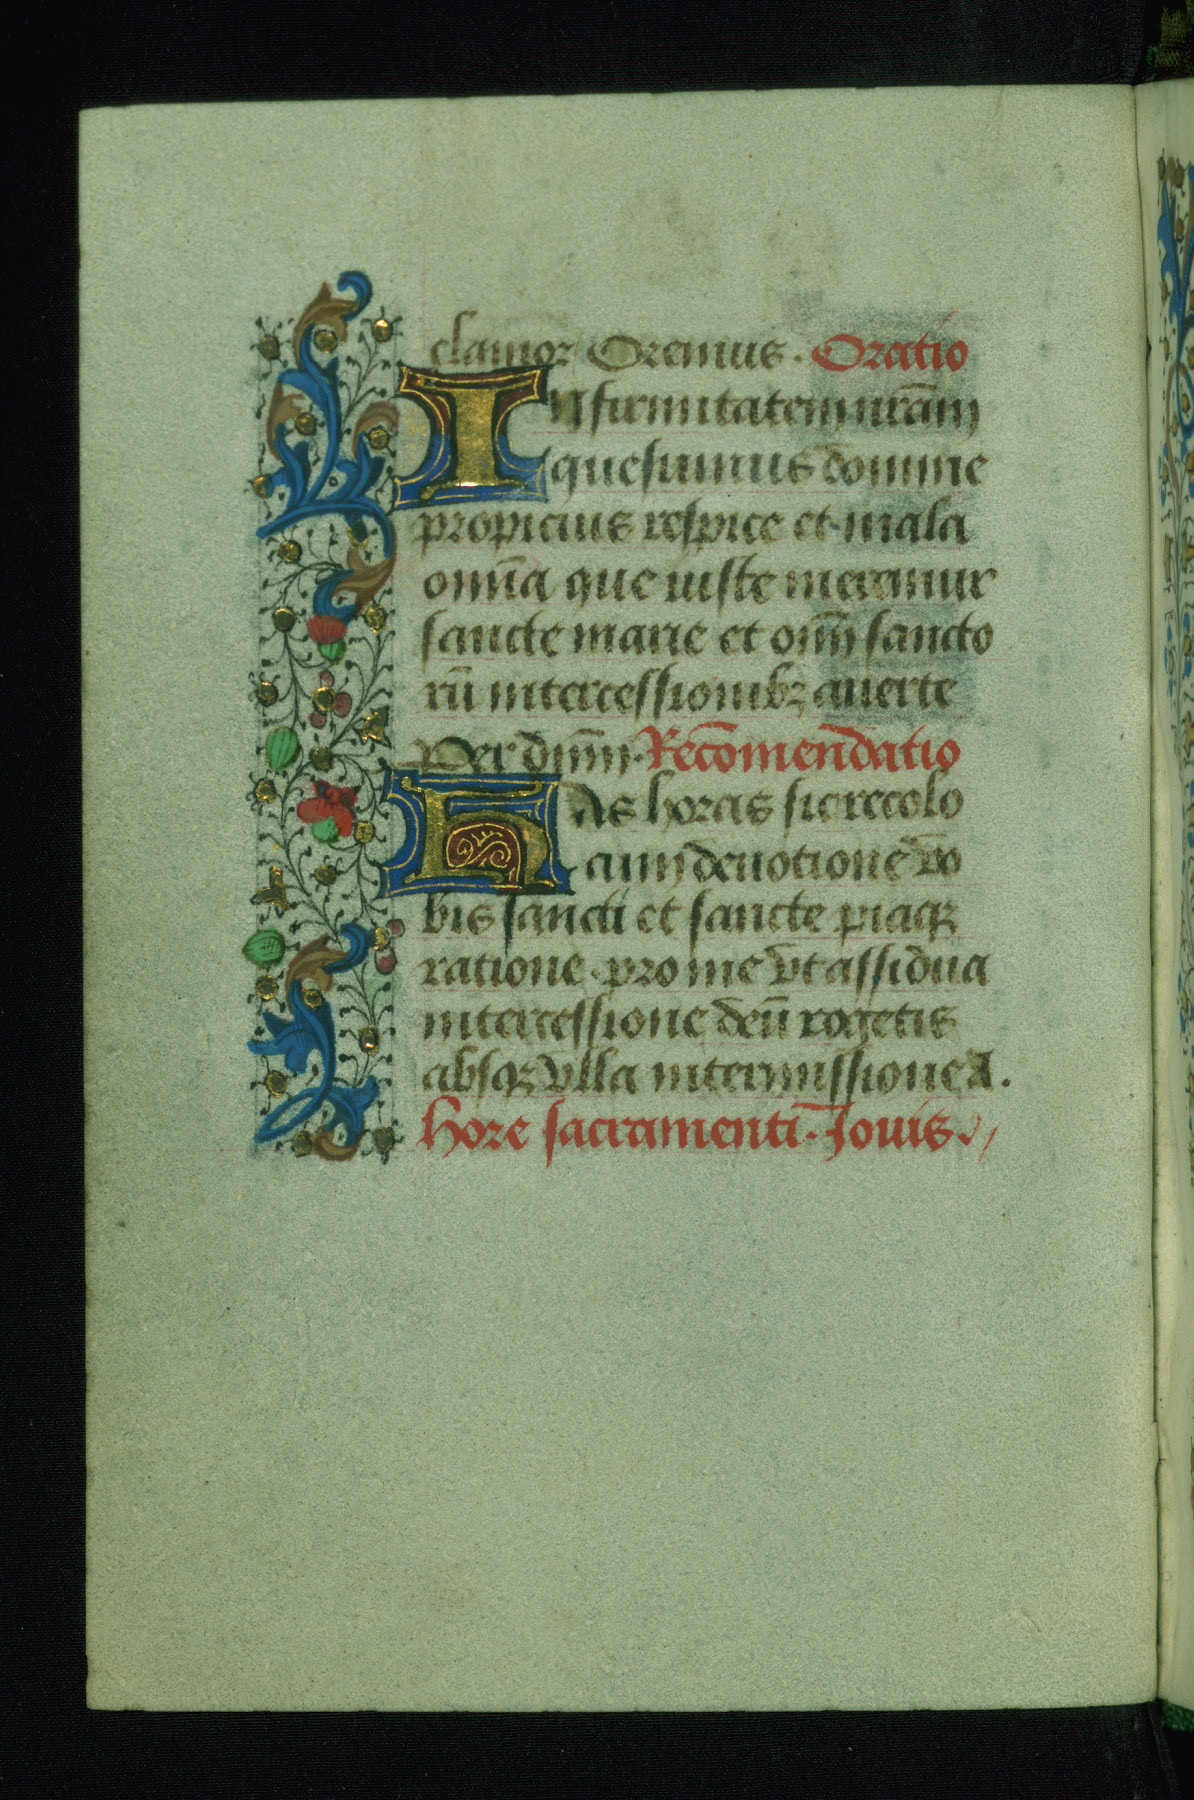 clamor Oremus. Oratio
Infirmitatem nr̄am
quesumus domine
propicius respice et mala
om̄ia que iuste meremur
sancte marie et om̄i sancto
rū intercessionibꝫ auerte
Per dn̄m. Recōmendatio
Has horas sic recolo
cum deuotione vo
bis sancti et sancte piaqꝫ
ratione. pro me vt assidua
intercessione deū rogetis
absqꝫ vlla intermissione A.
hore sacramenti. Iouis.